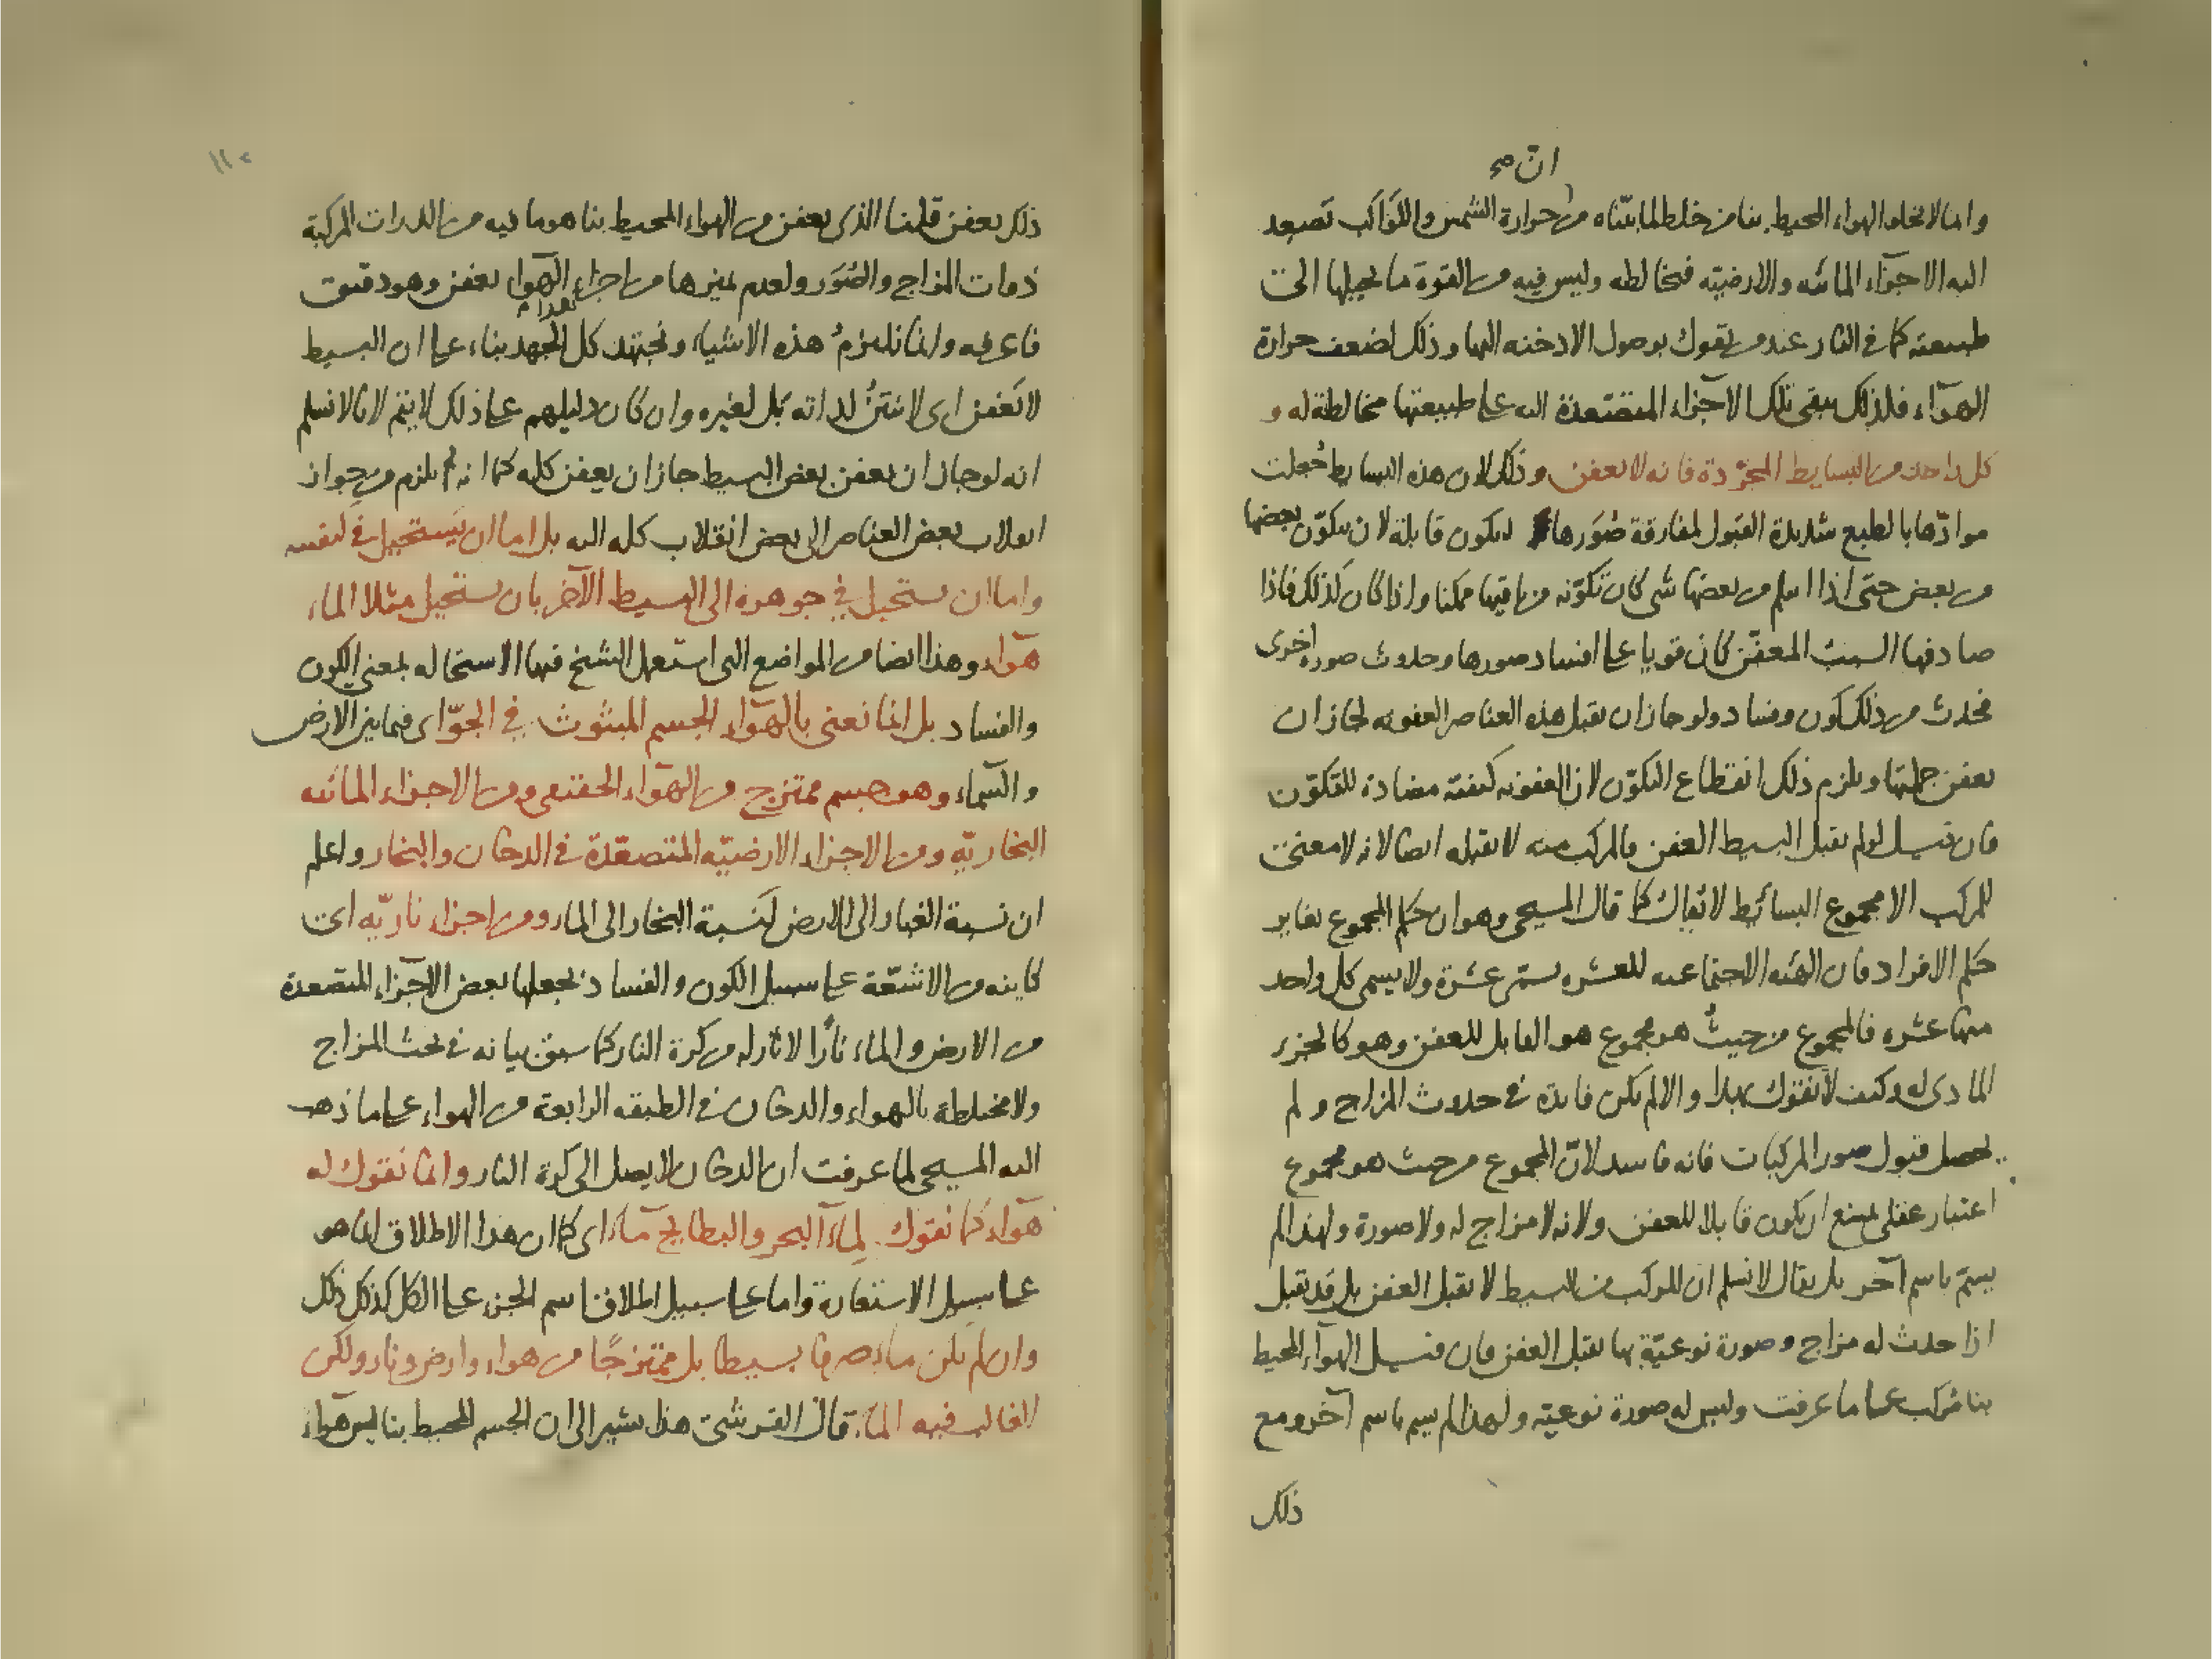 ان صح
وانما لا يخلو الهواء المحيط بنا من خلط لما بيّناه من حرارة الشمس والكواكب تصعد
اليه الاجزاء المائيه والارضيّه فيخالطه وليس فيه من القوة ما يحيلها الى
طبيعته كما في النار عند من يقول بوصول الادخنه اليها وذلك لضعف حرارة
الهواء فلذلك يبقى تلك الاجزاء المتصعدة اليه على طبيعتها مخالطة له و
كل واحد من البسايط المجرّدة فانه لا يعفن وذلك لان هذه البسايط جُعلت
موادّها بالطبع شديدة القبول لمفارقة صُوَرها ليكون قابلة لان يتكوّن بعضها
من بعض حتى اذا من بعضها شى كان تكوّنه من باقيها ممكنا واذا كان كذلك فاذا
صادفها السبب المعفّن كان قويا على افساد صورها وحدوث صوره اخرى
فحدث من ذلك كون وفساد ولو جاز ان يقبل هذه العناصر العفونه لجاز ان
يعفن جملتها ويلزم ذلك انقطاع التكوّن لان العفونه كيفيّه مضادة للتكوّن
فان قيل لو لم يقبل البسيط العفن فالمركب منه لا يقبله ايضا لانه لا معنى
للمركب الا مجموع البسائط لا يقال كما قال المسيحى وهو ان حكم المجموع يغاير
حكم الافراد فان الهيئه الاجتماعيه للعشره يسمّى عشرة ولا يسمى كل واحد
منها عشره فالمجموع من حيث هو مجموع هو القابل للعفن وهو كالجزء
المادى له وكيف لا يقول بهذا والا لم يكن فايدة في حدوث المزاج ولم
يحصل قبول صور المركبات فانه فاسد لانّ المجموع من حيث هو مجموع
اعتبار عقلى يمتنع ان يكون قابلا للعفن ولانه لا مزاج له ولا صورة ولهذا لم
يسمّ باسم آخر بل يقال لا نسلم ان المركب من البسيط لا يقبل العفن بل قد يقبل
اذا حدث له مزاج وصورة نوعيّة بها يقبل العفن فان قيل الهواء المحيط
بنا مُركب على ما عرفت وليس له صورة نوعيّه ولهذا لم يسم باسم آخر ومع
ذلك
١١٢
ذلك يعفن قلنا الذى يعفن من الهواء المحيط بنا هو ما فيه من المركبّة
ذوات المزاج والصُوَر ولعدم تميزها من اجزاء الهواء يعفن وهو دقيق
فاعرفه وانما نلتزمُ هذه الاشياء ونجتهد كل الجهد بناء على ان البسيط
لا يَعْفن اى لا ينتنُ لذاته بل لغيره وان كان دليلهم على ذلك لا يتم لانا لا نسلم
انه لو جاز ان يعفن بعض البسيط جاز ان يعفن كله كما انه لم يلزم من جواز
انقلاب بعض العناصر الى بعض انقلاب كله اليه بل اما ان يَستحيل في نفسه
واما ان يستحيل في جوهره الى البسيط الآخر بان يستحيل مثلا الماء
هواء وهذا ايضا من المواضع التى استعمل الشيخ فيها الاستحاله بمعنى الكون
والفساد بل انما نعنى بالهواء الجسم المبثوث في الجوّ اى فيما بين الارض
والسماء وهو جسم ممتزج من الهواء الحقيقى ومن الاجزاء المائيه
البخاريّه ومن الاجزاء الارضيّه المتصعّدة في الدخان والبخار واعلم
ان نسبة الغبار الى الارض كنسبة البخار الى الماء ومن اجزاء ناريّه اى
كاينه من الاشعّة على سبيل الكون والفساد بجعلها بعض الاجزاء المتصعدة
من الارض والماء نارًا لا نازله من كرة النار كما سبق بيانه في بحث المزاج
ولا مختلطة بالهواء والدخان في الطبقه الرابعة من الهواء على ما ذهب
اليه المسيحى لما عرفت ان الدخان لا يصل الى كرة النار وانما نقول له
هواء كما نقول لماء البحر والبطايح ماء اى كما ان هذا الاطلاق انما هو
على سبيل الاستعارة واما على سبيل اطلاق اسم الجزء على الكل كذلك ذلك
وان لم يكن ماء صرفا بسيطا بل ممتزجًا من هواء وارض ونار ولكن
الغالب فيه الماء قال القرشى هذا يشير الى ان الجسم المحيط بنا ليس هواء